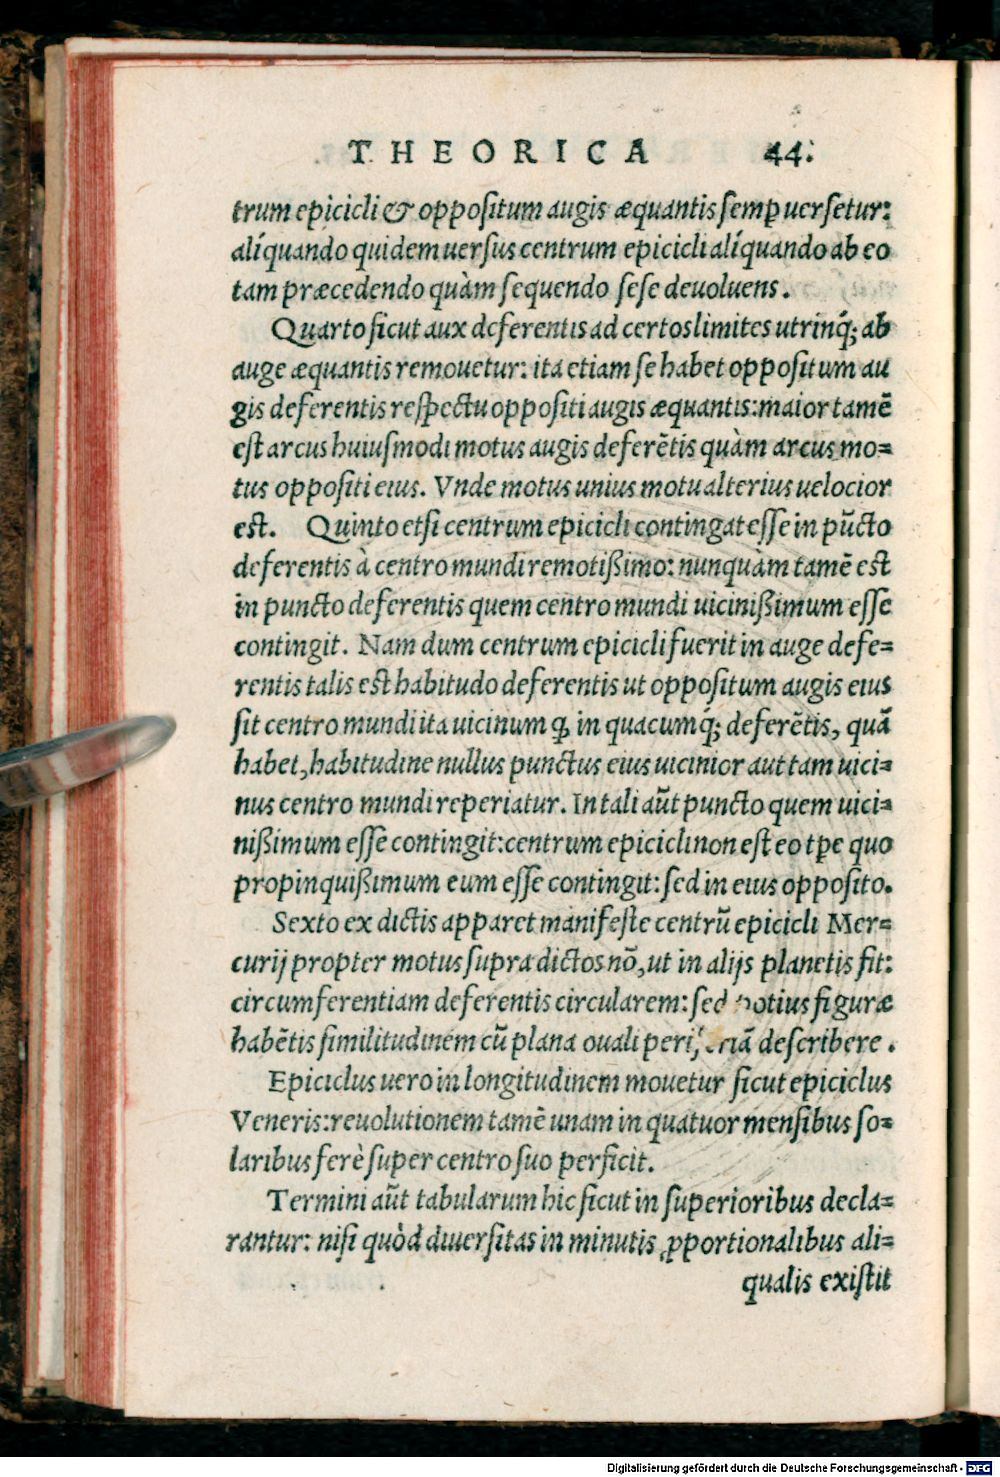 THEORICA 44.
trum epicicli & oppositum augis æquantis semp uersetur:
alíquando quidem uersus centrum epicicli alíquando ab eo
tam præcedendo quàm sequendo sese deuoluens.
Quarto sicut aux deferentis ad certos limites utrinq́; ab
auge æquantis remouetur: ita etiam se habet oppositum au
gis deferentis respectu oppositi augis æquantis: maior tamē
est arcus huiusmodi motus augis deferētis quàm arcus mo=
tus oppositi eius. Vnde motus unius motu alterius uelocior
est. Quinto etsi centrum epicicli contingat esse in pūcto
deferentis à centro mundi remotißimo: nunquàm tamē est
in puncto deferentis quem centro mundi uicinißimum esse
contingit. Nam dum centrum epicicli fuerit in auge defe=
rentis talis est habitudo deferentis ut oppositum augis eius
sit centro mundi ita uicinum q, in quacumq́; deferētis, quā
habet, habitudine nullus punctus eius uicinior aut tam uici=
nus centro mundi reperiatur. In tali aūt puncto quem uici=
nißimum esse contingit: centrum epicicli non est eo tpe quo
propinquißimum eum esse contingit: sed in eius opposito.
Sexto ex dictis apparet manifeste centrū epicicli Mer=
curij propter motus supra dictos nō, ut in alijs planetis fit:
circumferentiam deferentis circularem: sed potius figuræ
habētis similitudinem cū plana ouali describere.
Epiciclus uero in longitudinem mouetur sicut epiciclus
Veneris: reuolutionem tamē unam in quatuor mensibus so=
laribus ferè super centro suo perficit.
Termini aūt tabularum hic sicut in superioribus decla=
rantur: nisi quòd diuersitas in minutis ꝓportionalibus ali=
qualis existit
Digitalisierung gefördert durch die Deutsche Forschungsgemeinschaft - DFG